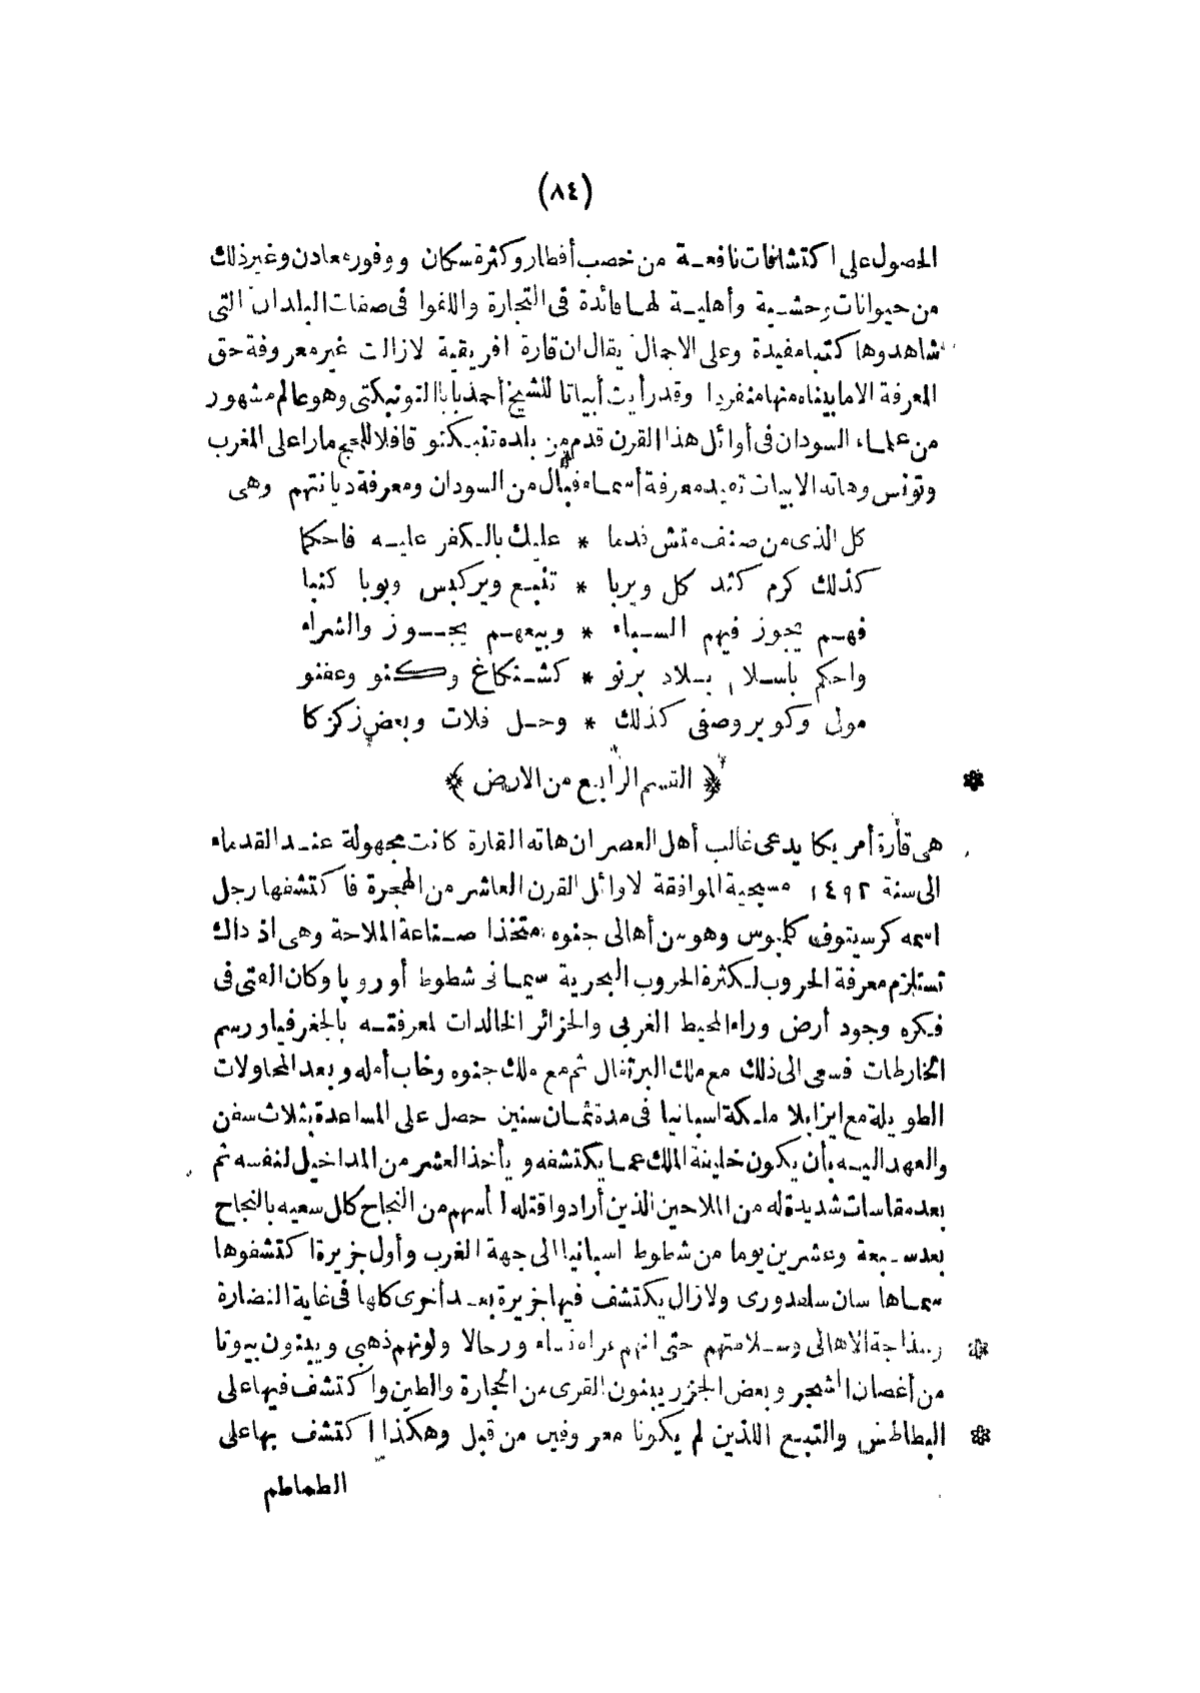 (٨٤)
الحصول على اكتشافات نافعة من خصب أقطار وكثرة سكان ووفور معادن وغير ذلك
من حيوانات وحشية وأهلية لها فائدة فى التجارة واللغوا فى صفات البلدان التى
شاهدوها كتبا مفيدة وعلى الاجمال يقال ان قارة افريقية لازالت غير معروفة حق
المعرفة الا ما بيناه منها منفردا وقد رأيت أبياتا للشيخ أحمد بابا التونبكتى وهو عالم مشهور
من علماء السودان فى أوائل هذا القرن قدم من بلده تنبكتو قافلا للحج مارا على المغرب
وتونس وهاته الابيات تفيد معرفة أسماء قبائل من السودان ومعرفة ديانتهم وهى
كل الذى من صنف متش قدما * عليك بالكفر عليه فاحكما
كذلك كرم كند كل ويربا * تنبع ويركبس وبوبا كنبا
فهم يجوز فيهم السباء * وبيعهم يجوز والشراء
واحكم باسلام بلاد برنو * كشنكاغ وكنو وعفنو
مول وكوبر وصفى كذلك * وحل فلات وبعض زكزكا
﴿ القسم الرابع من الارض ﴾
هى قارة أمريكا يدعى غالب أهل العصر ان هاته القارة كانت مجهولة عند القدماء
الى سنة ١٤٩٢ مسيحية الموافقة لاوائل القرن العاشر من الهجرة فاكتشفها رجل
اسمه كرسيتوف كلبوس وهو من أهالى جنوه متخذا صناعة الملاحة وهى اذ ذاك
تستلزم معرفة الحروب لكثرة الحروب البحرية سيما فى شطوط أوروپا وكان الفتى فى
فكره وجود أرض وراء المحيط الغربى والجزائر الخالدات لمعرفته بالجغرفيا ورسم
الخارطات فسعى الى ذلك مع ملك البرتغال ثم مع ملك جنوه وخاب أمله وبعد المحاولات
الطويلة مع ايزابلا ملكة اسبانيا فى مدة ثمان سنين حصل على المساعدة بثلاث سفن
والعهد اليه بأن يكون خليفة الملك عما يكتشفه ويأخذ العشر من المداخيل لنفسه ثم
بعد مقاسات شديدة له من الملاحين الذين أرادوا قتله لما أيسهم من النجاح كال سعيه بالنجاح
بعد سبعة وعشرين يوما من شطوط اسبانيا الى جهة الغرب وأول جزيرة اكتشفوها
سماها سان سلفدورى ولازال يكتشف فيها جزيرة بعد أخرى كلها فى غاية النضارة
وسذاجة الاهالى وسلامتهم حتى انهم عراة نساء ورجالا ولونهم ذهبى ويبنون بيوتا
من أغصان الشجر وبعض الجزر يبنون القرى من الحجارة والطين واكتشف فيها على
البطاطس والتبغ اللذين لم يكونا معروفين من قبل وهكذا اكتشف بها على
الطماطم